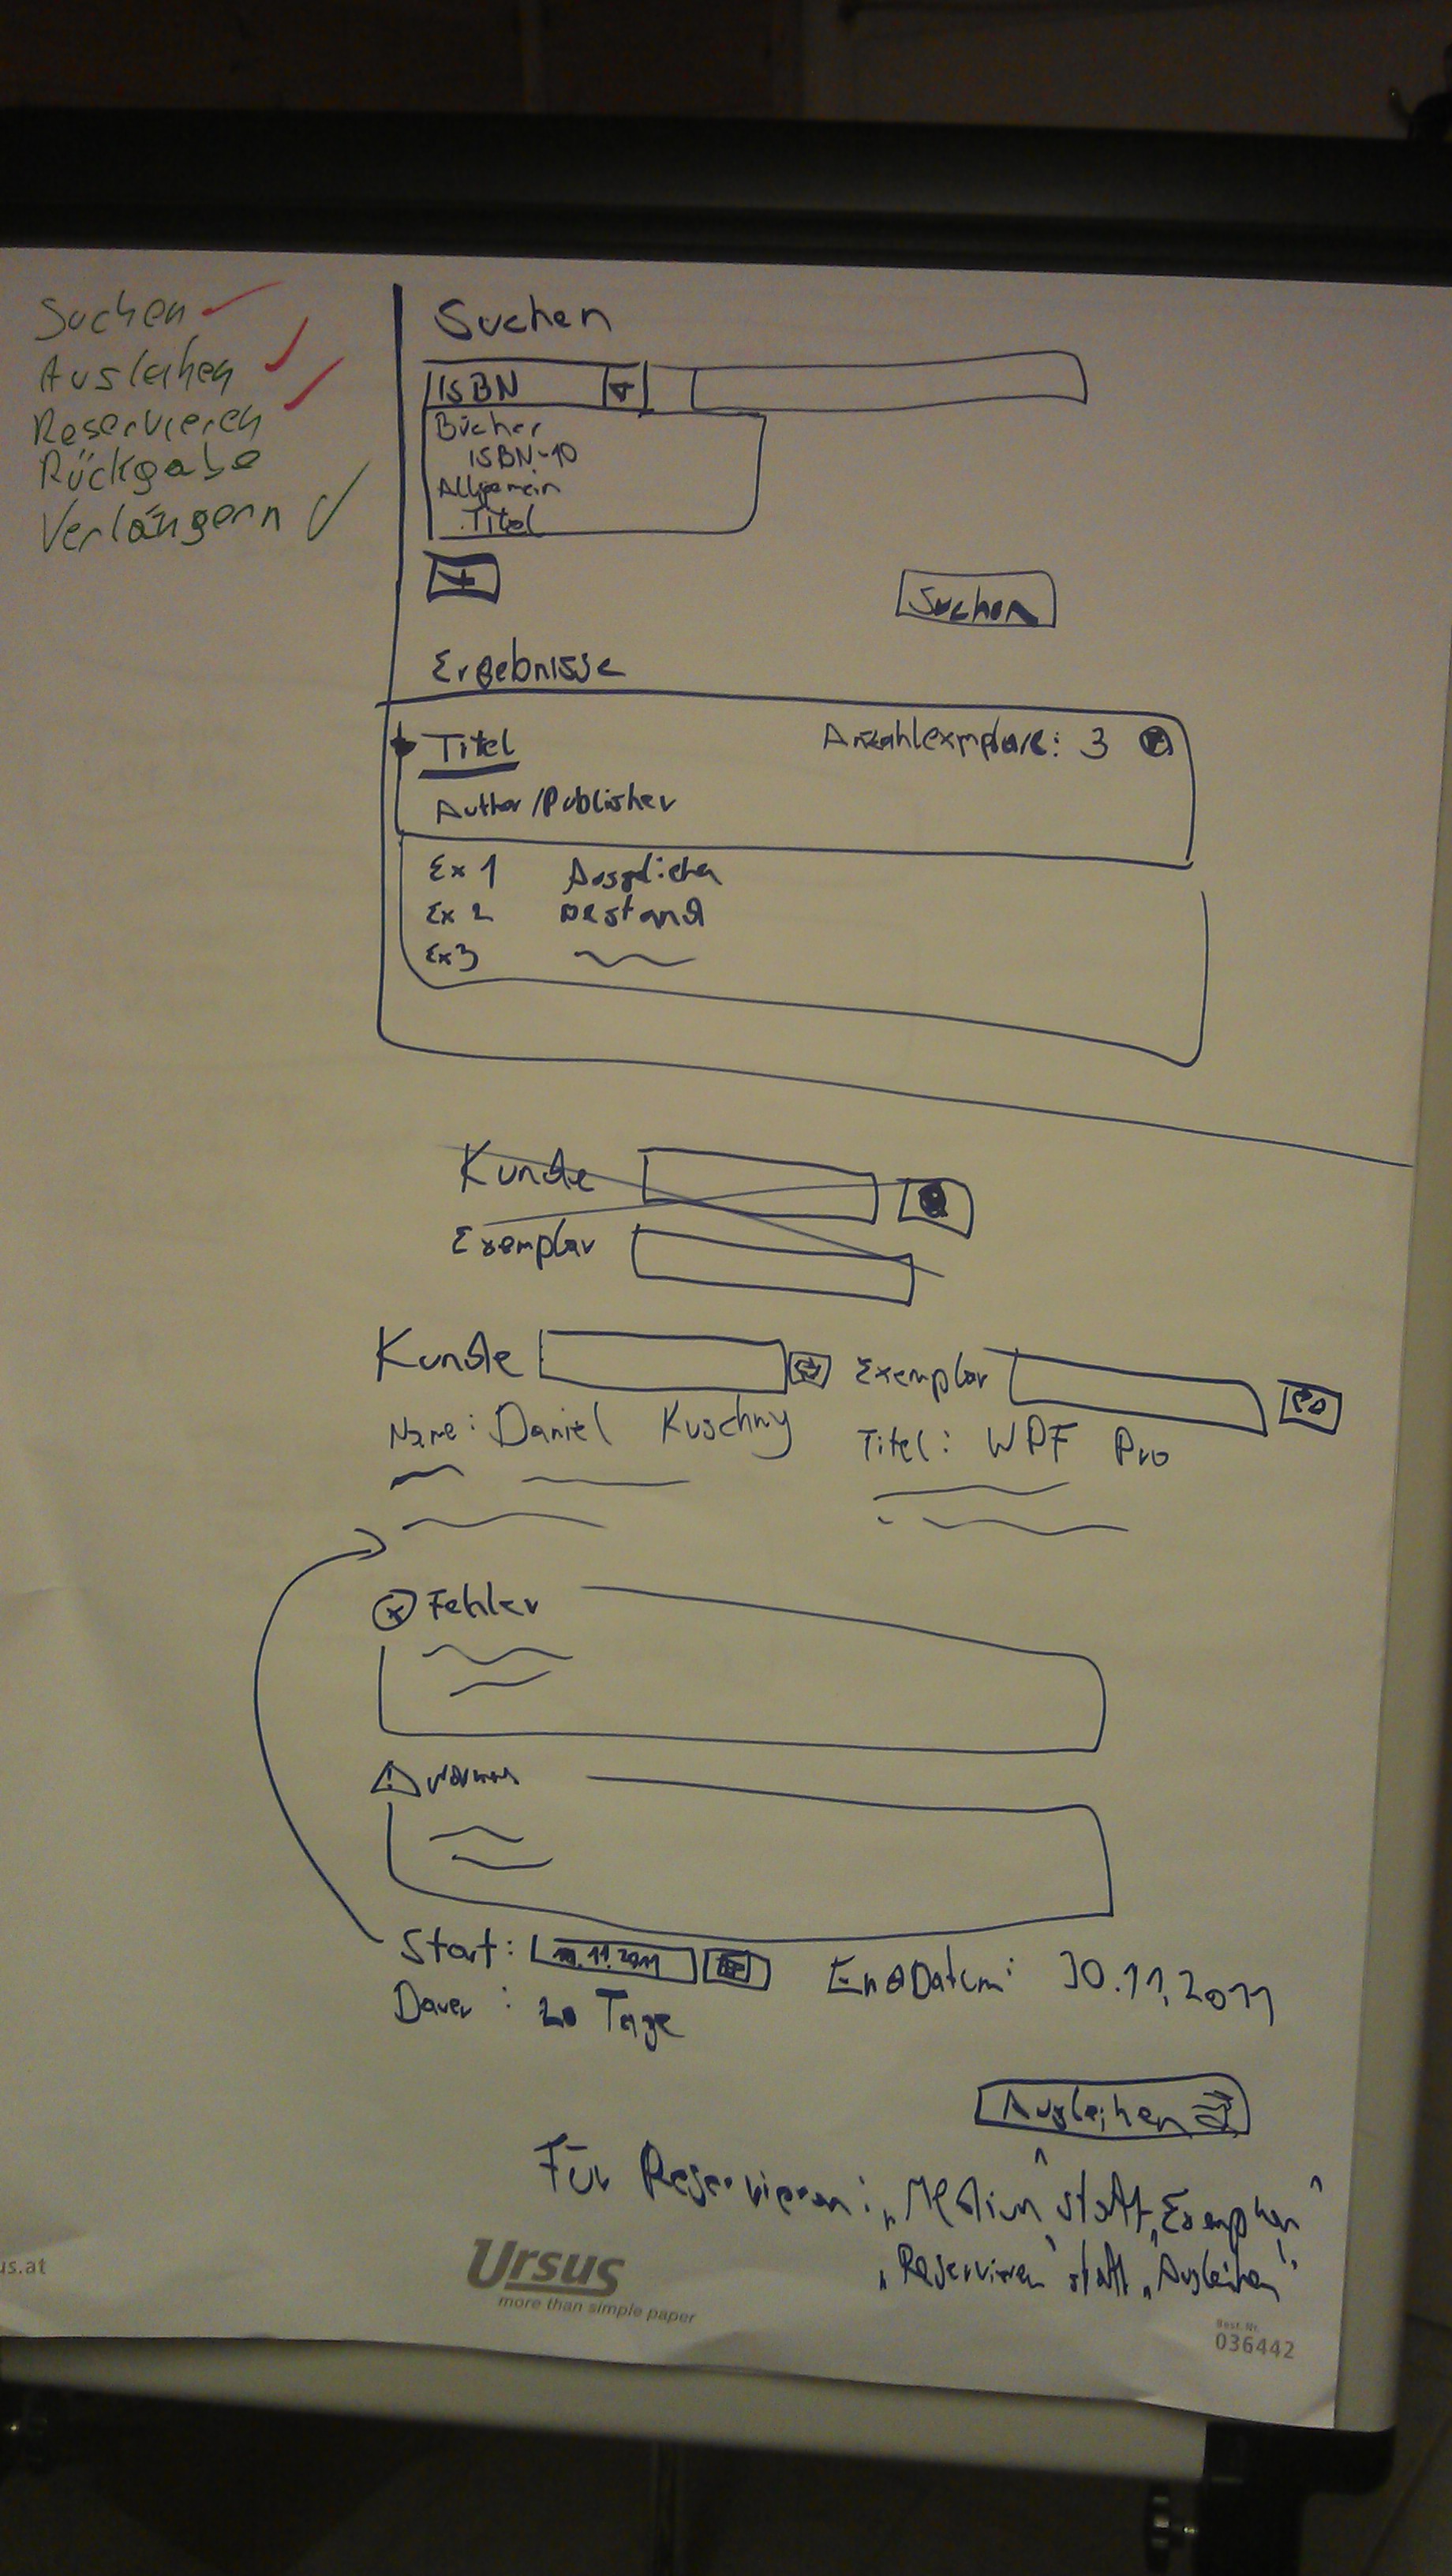 Suchen
Ausleihen
Reservieren
Rückgabe
Verlängern
Suchen
ISBN
Bücher
ISBN-10
Allgemein
Titel
+
Suchen
Ergebnisse
Titel Anzahlexemplare: 3
Author/Publisher
Ex 1 Ausgeliehen
Ex 2 Bestand
Ex 3
Kunde
Exemplar
Kunde Exemplar
Name: Daniel Kuschny Titel: WPF Pro
Fehler
Start: 10.11.2011 EndDatum: 30.11.2011
Dauer: 20 Tage
Ausleihen
Für Reservieren: „Medium" statt „Exemplar"
„Reservieren" statt „Ausleihen"
us.at
Ursus
more than simple paper
Best. Nr.
036442